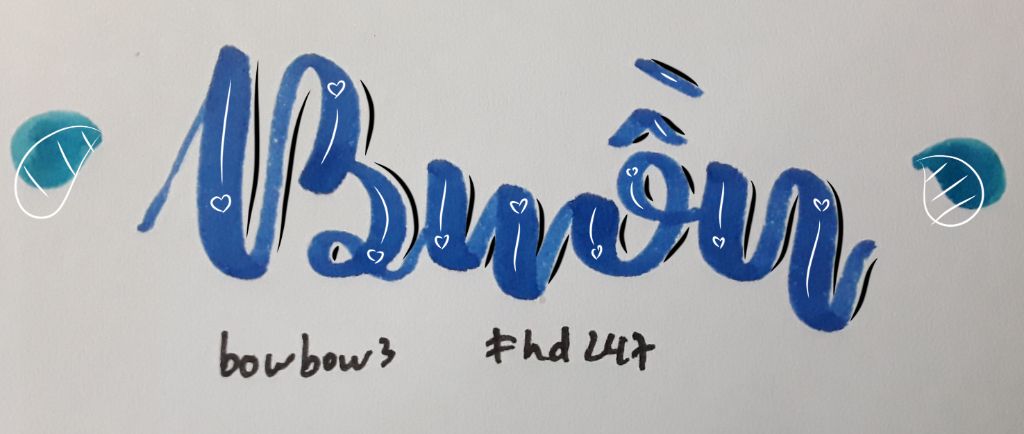 Buồn
bowbow3 #hd247